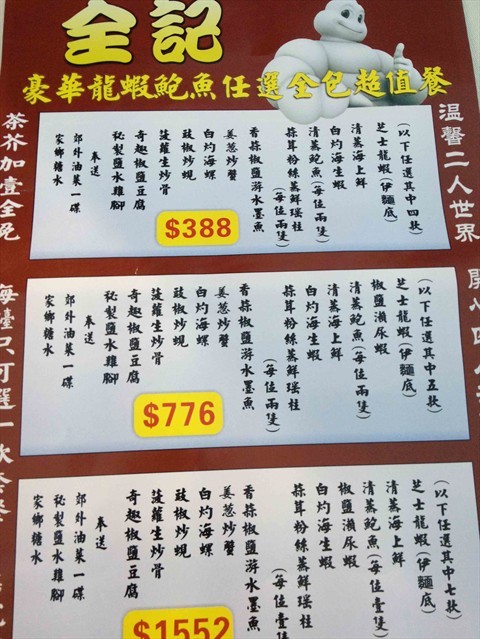 全記
豪華龍蝦鮑魚任選全包超值餐
溫馨二人世界
(以下任選其中四款)
芝士龍蝦(伊麵底)
清蒸海上鮮
白灼海生蝦
清蒸鮑魚(每位兩隻)
蒜茸粉絲蒸鮮瑶柱
香蒜椒鹽游水墨魚
姜葱炒蟹
白灼海螺
豉椒炒蜆
菠蘿生炒骨
奇趣椒鹽豆腐
秘製鹽水雞腳
奉送
郊外油菜一碟
家鄉糖水
$388
(以下任選其中五款)
芝士龍蝦(伊麵底)
椒鹽瀨尿蝦
清蒸海上鮮
清蒸鮑魚(每位兩隻)
白灼海生蝦
蒜茸粉絲蒸鮮瑶柱
(每位兩隻)
香蒜椒鹽游水墨魚
姜葱炒蟹
白灼海螺
豉椒炒蜆
菠蘿生炒骨
奇趣椒鹽豆腐
秘製鹽水雞腳
奉送
郊外油菜一碟
家鄉糖水
$776
(以下任選其中七款)
芝士龍蝦(伊麵底)
清蒸海上鮮
清蒸鮑魚(每位壹隻)
椒鹽瀨尿蝦
白灼海生蝦
蒜茸粉絲蒸鮮瑶柱
(每位壹隻
香蒜椒鹽游水墨魚
姜葱炒蟹
白灼海螺
豉椒炒蜆
菠蘿生炒骨
奇趣椒鹽豆腐
奉送
郊外油菜一碟
秘製鹽水雞腳
家鄉糖水
$1552
茶芥加壹全免
每檯只可選一款